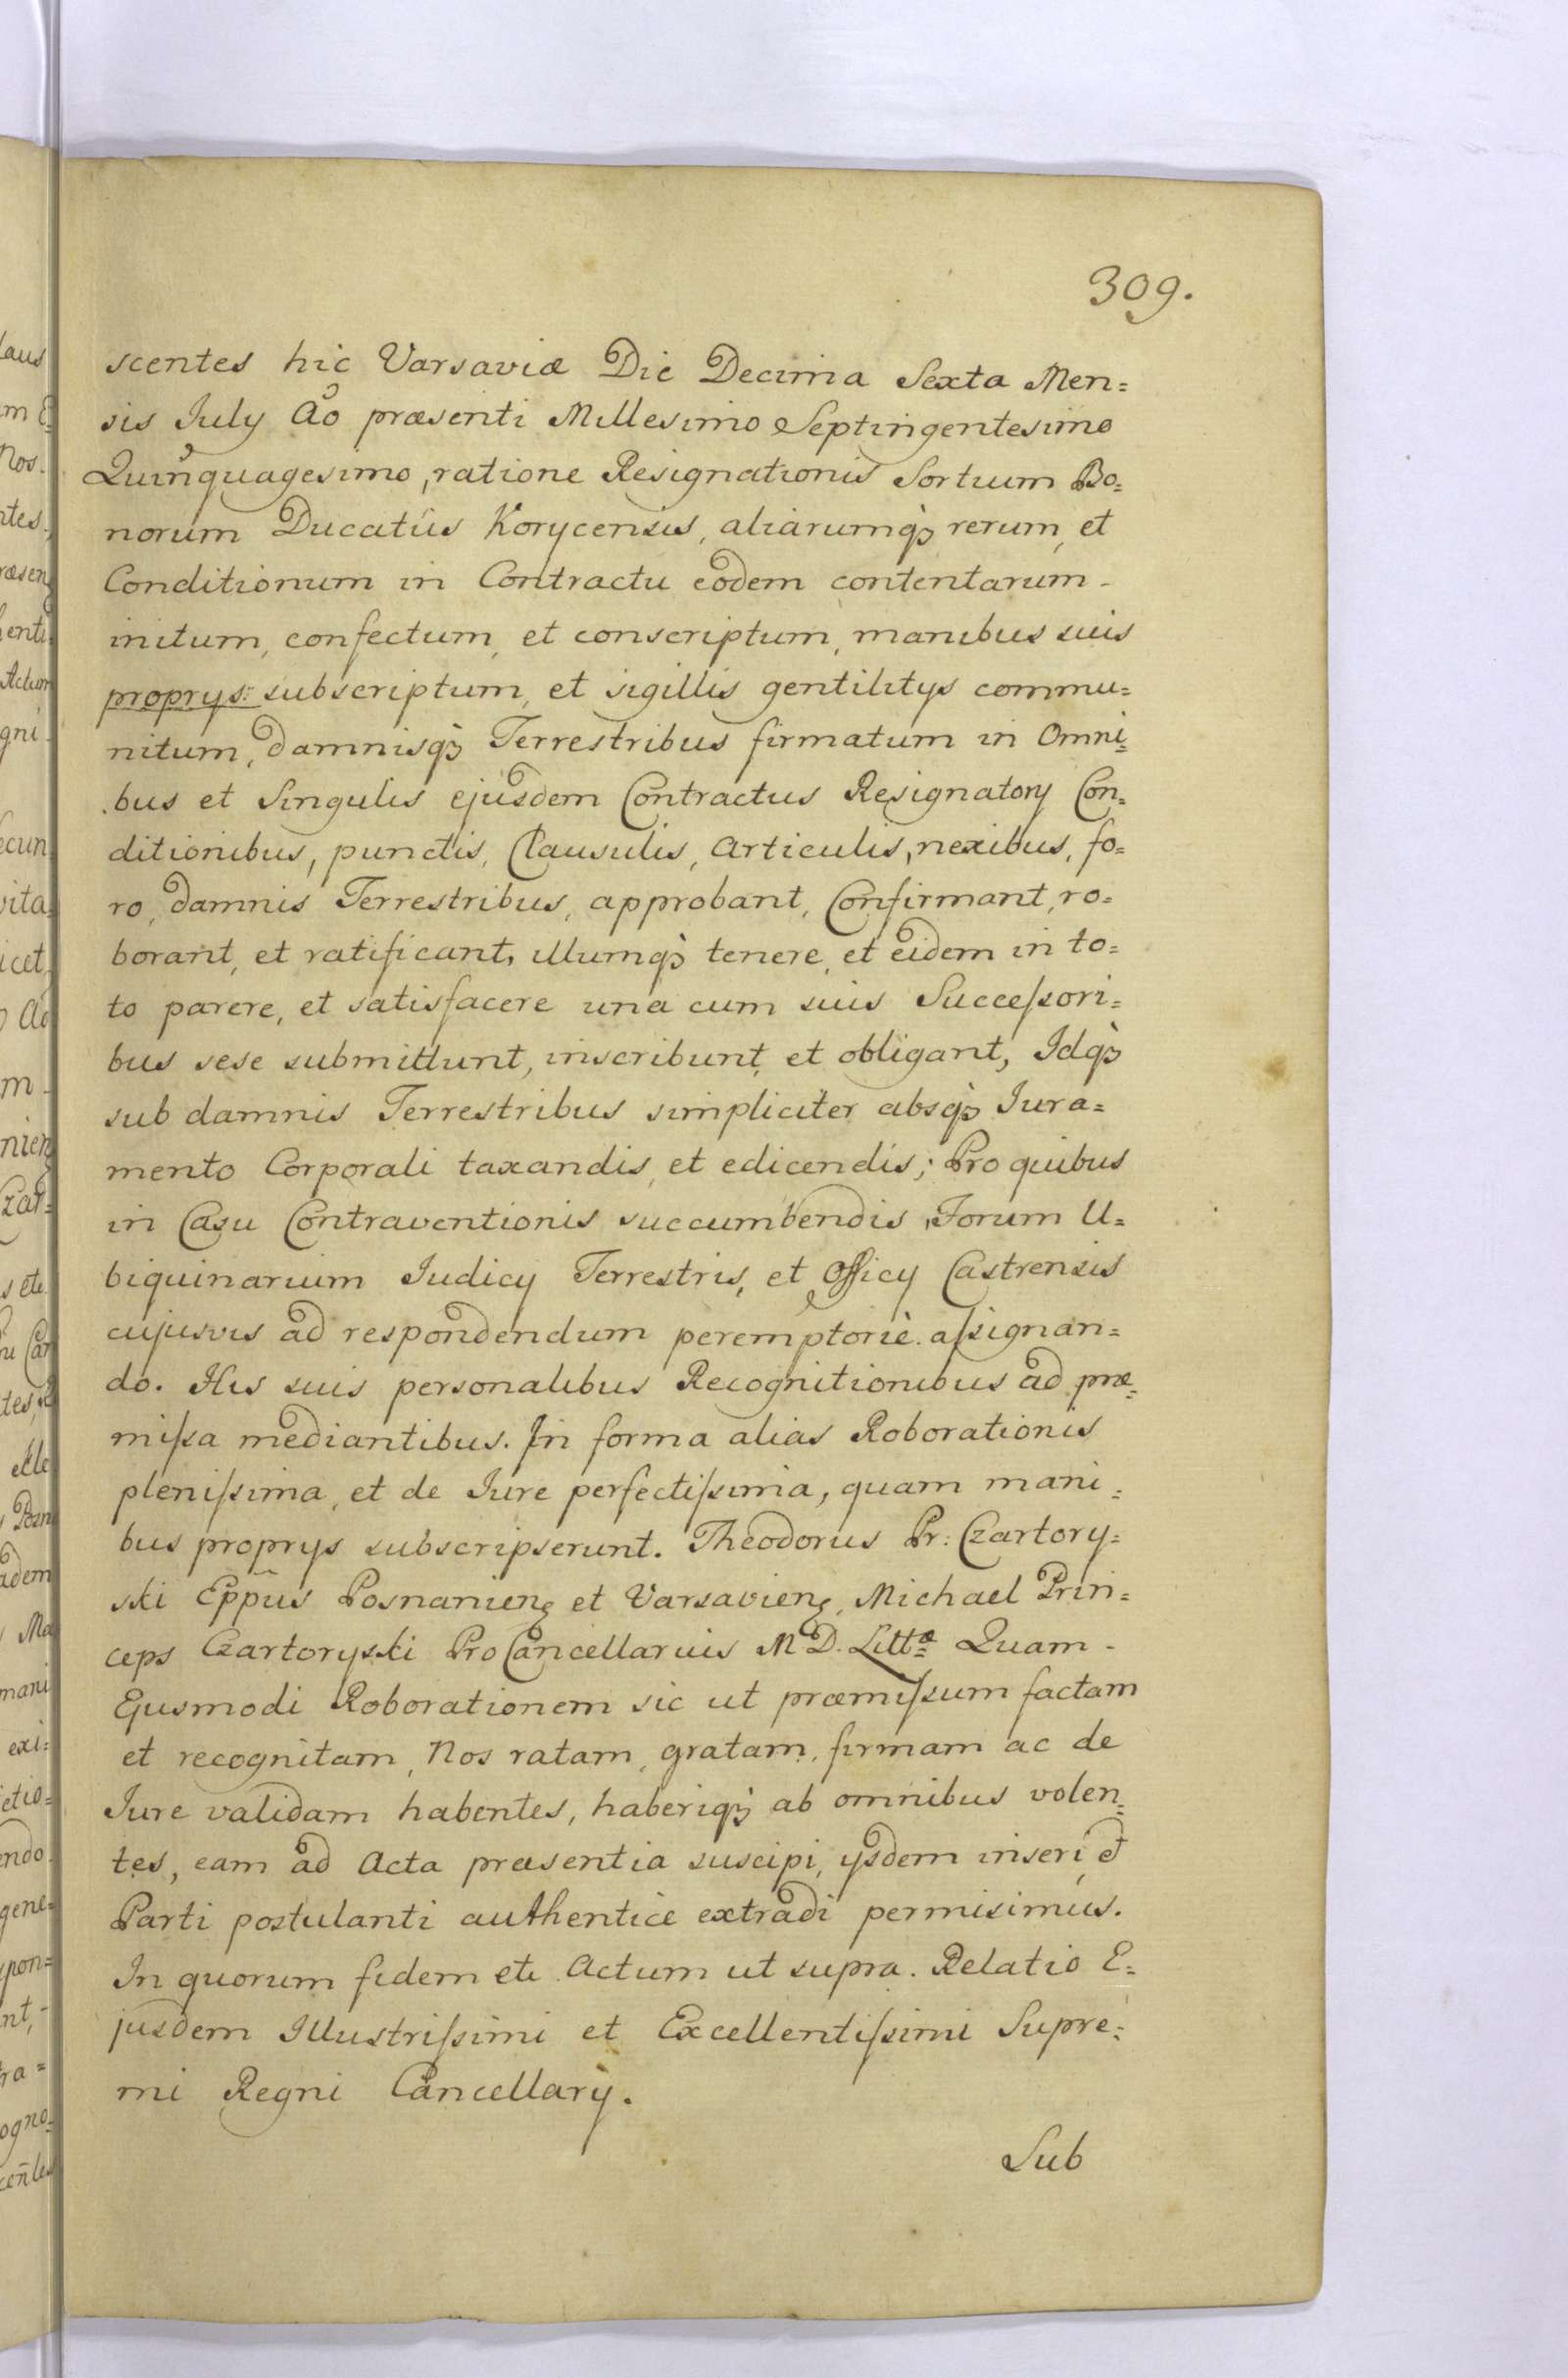 309.
scentes hic Varsaviæ Die Decima Sexta Men=
sis July Aõ præsenti Millesimo Septingentesimo
Quinquagesimo, ratione Resignationis Sortium Bo=
norum Ducatûs Korycensis, aliarumq; rerum, et
Conditionum in Contractu eodem contentarum -
initum, confectum, et conscriptum, manibus suis
proprys: subscriptum, et sigillis gentilitys commu=
nitum, damnisq; Terrestribus firmatum in Omni=
bus et Singulis ejusdem Contractus Resignatory Con=
ditionibus, punctis, Clausulis, Articulis, nexibus, fo=
ro, damnis Terrestribus, approbant, Confirmant, ro=
borant, et ratificant, illumq; tenere, et eidem in to=
to parere, et satisfacere una cum suis Succeſsori=
bus sese submittunt, inscribunt, et obligant, Idq;
sub damnis Terrestribus simpliciter absq; Jura=
mento Corporali taxandis, et edicendis; Pro quibus
in Casu Contraventionis succumbendis, Forum U=
biquinarium Judicy Terrestris, et Officy Castrensis
cujusvis ad respondendum peremptorie aſsignan=
do. His suis personalibus Recognitionibus ad præ=
miſsa mediantibus. In forma alias Roborationis
pleniſsima, et de Jure perfectiſsima, quam mani=
bus proprys subscripserunt. Theodorus Pr: Czartory=
ski Epp̃us Posnanien; et Varsavien; Michael Prin=
ceps Czartoryski ProCancellarius M D. Littæ Quam -
Ejusmodi Roborationem sic ut præmiſsum factam
et recognitam, Nos ratam, gratam, firmam ac de
Jure validam habentes, haberiq; ab omnibus volen=
tes, eam ad Acta præsentia suscipi, ysdem inseri, et
Parti postulanti authentice extradi permisimus.
In quorum fidem etc Actum ut supra. Relatio E=
jusdem Illustriſsimi et Excellentiſsimi Supre=
mi Regni Cancellary.
Sub